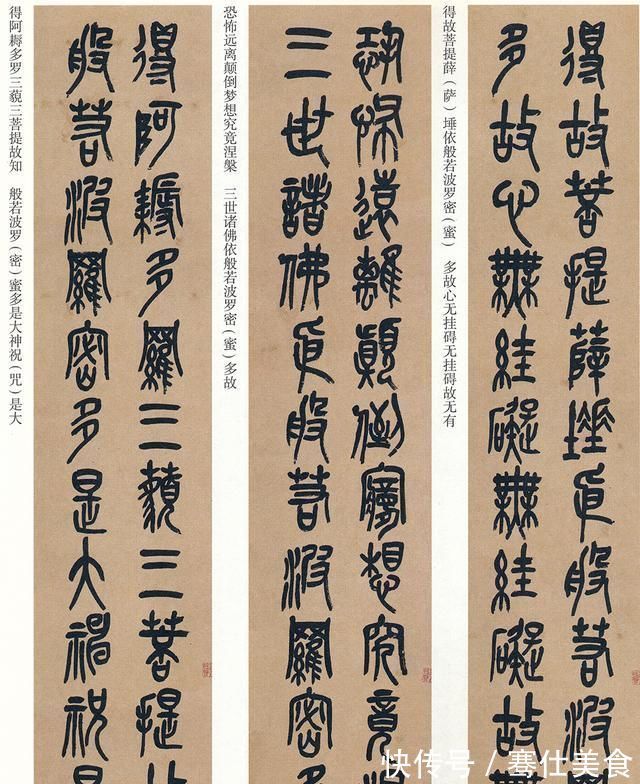 得故菩提薛埵依般若波
多故心無絓礙無絓礙故無
得故菩提薛（萨）埵依般若波罗密（蜜） 多故心无挂碍无挂碍故无有
恐怖遠離顛倒夢想究竟
三世諸佛依般若波羅密多
恐怖远离颠倒梦想究竟涅槃 三世诸佛依般若波罗密（蜜）多故
得阿耨多羅三藐三菩提故
般若波羅密多是大神祝是
得阿耨多罗三藐三菩提故知 般若波罗（密）蜜多是大神祝（咒）是大
快传号 / 骞仕美食